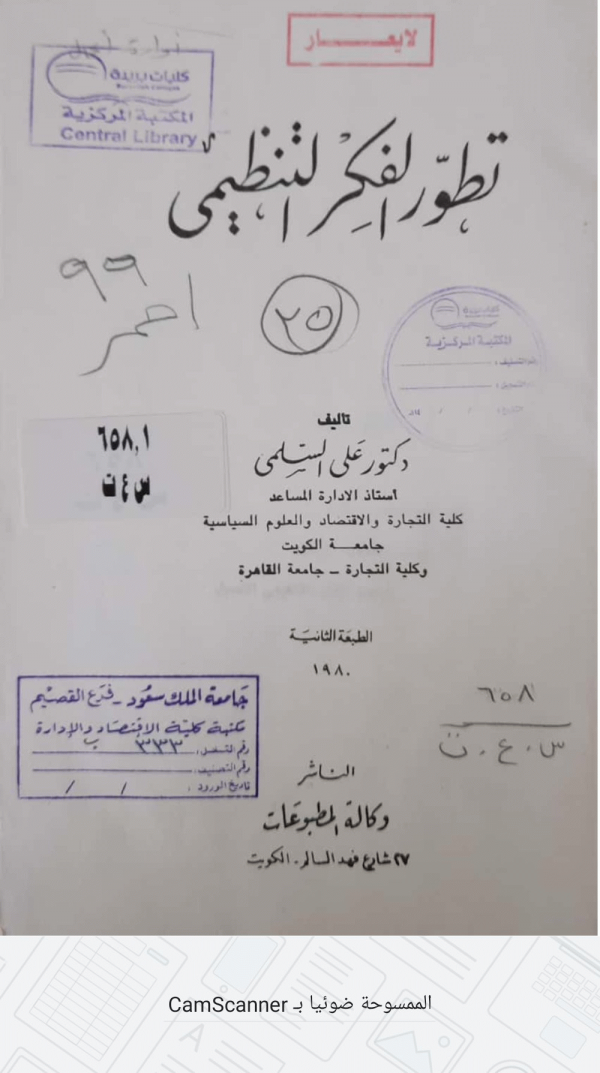 لايعار
كليات بريدة
المكتبة المركزية
Central Library
تطور الفكر التنظيمي
٩٩
احمر
٢٥
كليات بريدة
المكتبة المركزية
رقم التصنيف :
رقم التسجيل :
التاريخ : / / ١٤هـ
٦٥٨,١
س ع ت
تاليف
دكتور على السلمى
استاذ الادارة المساعد
كلية التجارة والاقتصاد والعلوم السياسية
جامعـــة الكويت
وكلية التجارة – جامعة القاهرة
الطبعة الثانية
١٩٨٠
جامعة الملك سعود - فرع القصيم
مكتبة كلية الاقتصاد والإدارة
رقم التسجيل : ٣٣٣
رقم التصنيف :
تاريخ الورود : / /
٦٥٨
س . ع . ت
الناشر
وكالة المطبوعات
٢٧ شارع فهد السالم - الكويت
الممسوحة ضوئيا بـ CamScanner